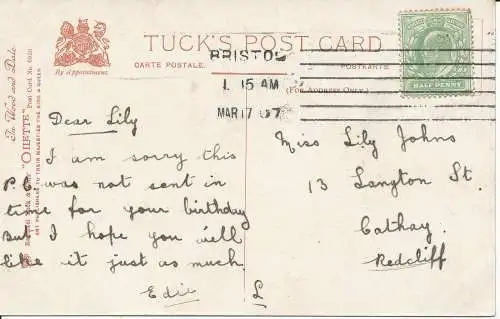 TUCK'S POST CARD
By Appointment
CARTE POSTALE.
POSTKARTE.
(For Address Only.)
In Wood and Dale
"OILETTE"
BRISTOL
1. 15 AM
MAR 17 07
HALF PENNY
Dear Lily
I am sorry this
P.C was not sent in
time for your birthday
But I hope you will
like it just as much.
Edie L
Miss Lily Johns
13 Langton St.
Cathay.
Redcliff